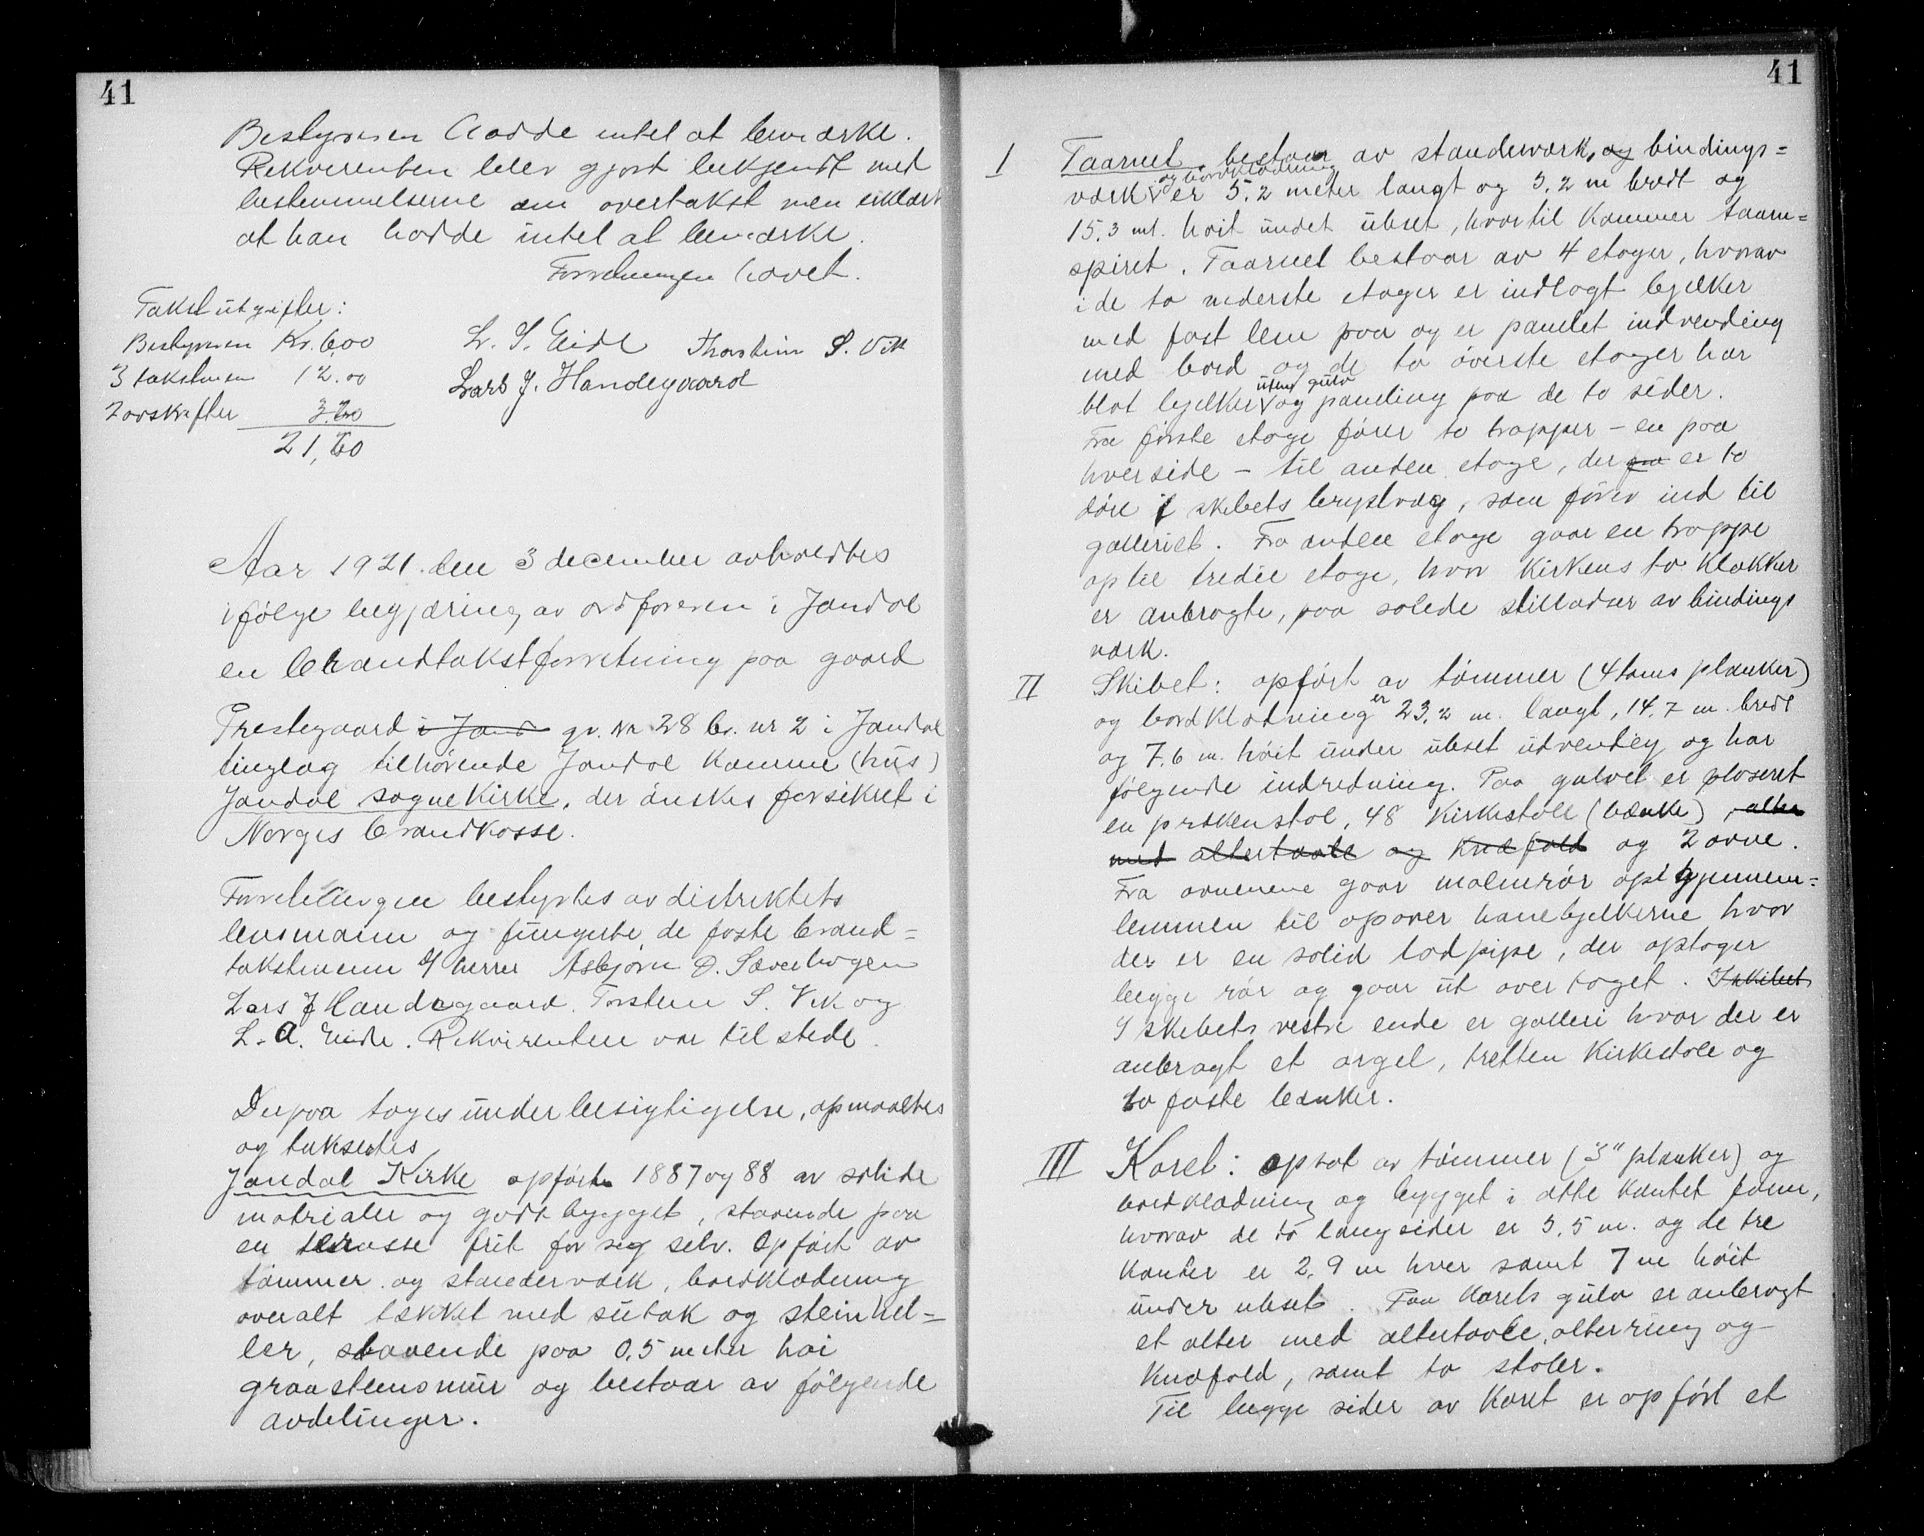 41
Bestyreren hadde intet at bemærke.
Rekvirenten blev gjort bekjendt med
bestemmelserne om overtakst men erklært
at han hadde intet at bemærke.
Forretningen hævet.
Takstutgifter:
Bestyreren Kr. 6,00
3 takstmen 12.00
2 avskrifter 3.60
21,60
L. S. Eide Thorstein S. Vik
Lars J. Handegaard
Aar 1921 den 3 december avholdtes
ifølge begjæring av ordføreren i Jondal
en brandtakstforretning paa gaard
Prestegaard i Jond gr. nr 28 br. nr 2 i Jondal
tinglag tilhørende Jondal Komune (hus)
Jondal sognekirke, der ønskes forsikret i
Norges brandkasse.
Forretningen bestyrtes av distriktets
lensmann og fungerte de faste brand=
takstmenn d/herrer Asbjørn O.
Lars J Handegaard. Torstein S. Vik og
L. A. Eide. Rekvirenten var tilstede.
Derpaa toges under besigtigelse, opmaaltes
og taksertes
Jondal Kirke opført 1887 og 88 av solide
materialer og godt bygget, staaende paa
en terasse frit for seg selv. Opført av
tømmer og standerværk, bordklædning
overalt tækket med sutak og steinhel=
ler, staaende paa 0,5 meter høi
graastensmur og bestaar av følgende
avdelinger.
41
I Taarnet bestaar av standerværk, og bindings=
værk og bordklædning er 5.2 meter langt og 5.2 m bredt og
15.3 mt. høit under ubset, hvortil kommer taarn=
spiret. Taarnet bestaar av 4 etager, hvorav
i de to nederste etager er indlagt bjelker
med fast lem paa og er panelet indvending
med bord og de to øverste etager har
blot bjelker uten gulv og paneling paa de to sider.
Fra første etage fører to trapper – en paa
hver side – til anden etage, der er to
døre i skibets brystvæg, som fører ind til
galleriet. Fra anden etage gaar en trappe
op til tredie etage, hvor kirkens to klokker
er anbragte, paa solide stilladser av bindings
værk.
II Skibet: opført av tømmer (4 toms planker)
og bordklædning er 23,2 m. langt, 14.7 m. bredt
og 7.6 m. høit under ubset utvendig og har
følgende indredning. Paa gulvet er plaseret
en prækenstol, 48 Kirkestole (bænke), alter
med altertavle og knæfald og 2 ovne.
Fra ovnenene gaar malmrør opi gjennem=
lemmen til opover hanebjelkerne hvor
der er en solid lodpipe, der optager
begge rør og gaar ut over taget. I skibet
I skibets vestre ende er galleri hvor der er
anbragt et orgel, tretten Kirkestole og
to faste bænker.
III Koret: opsat av tømmer (3" planker) og
bordklædning og bygget i otte kantet form,
hvorav de to langsider er 5,5 m. og de tre
kanter er 2,9 m hver samt 7 m høit
under ubset. Paa korets gulv er anbragt
et alter med altertavle, alterring og
knæfald, samt to stoler.
Til begge sider av koret er opført et